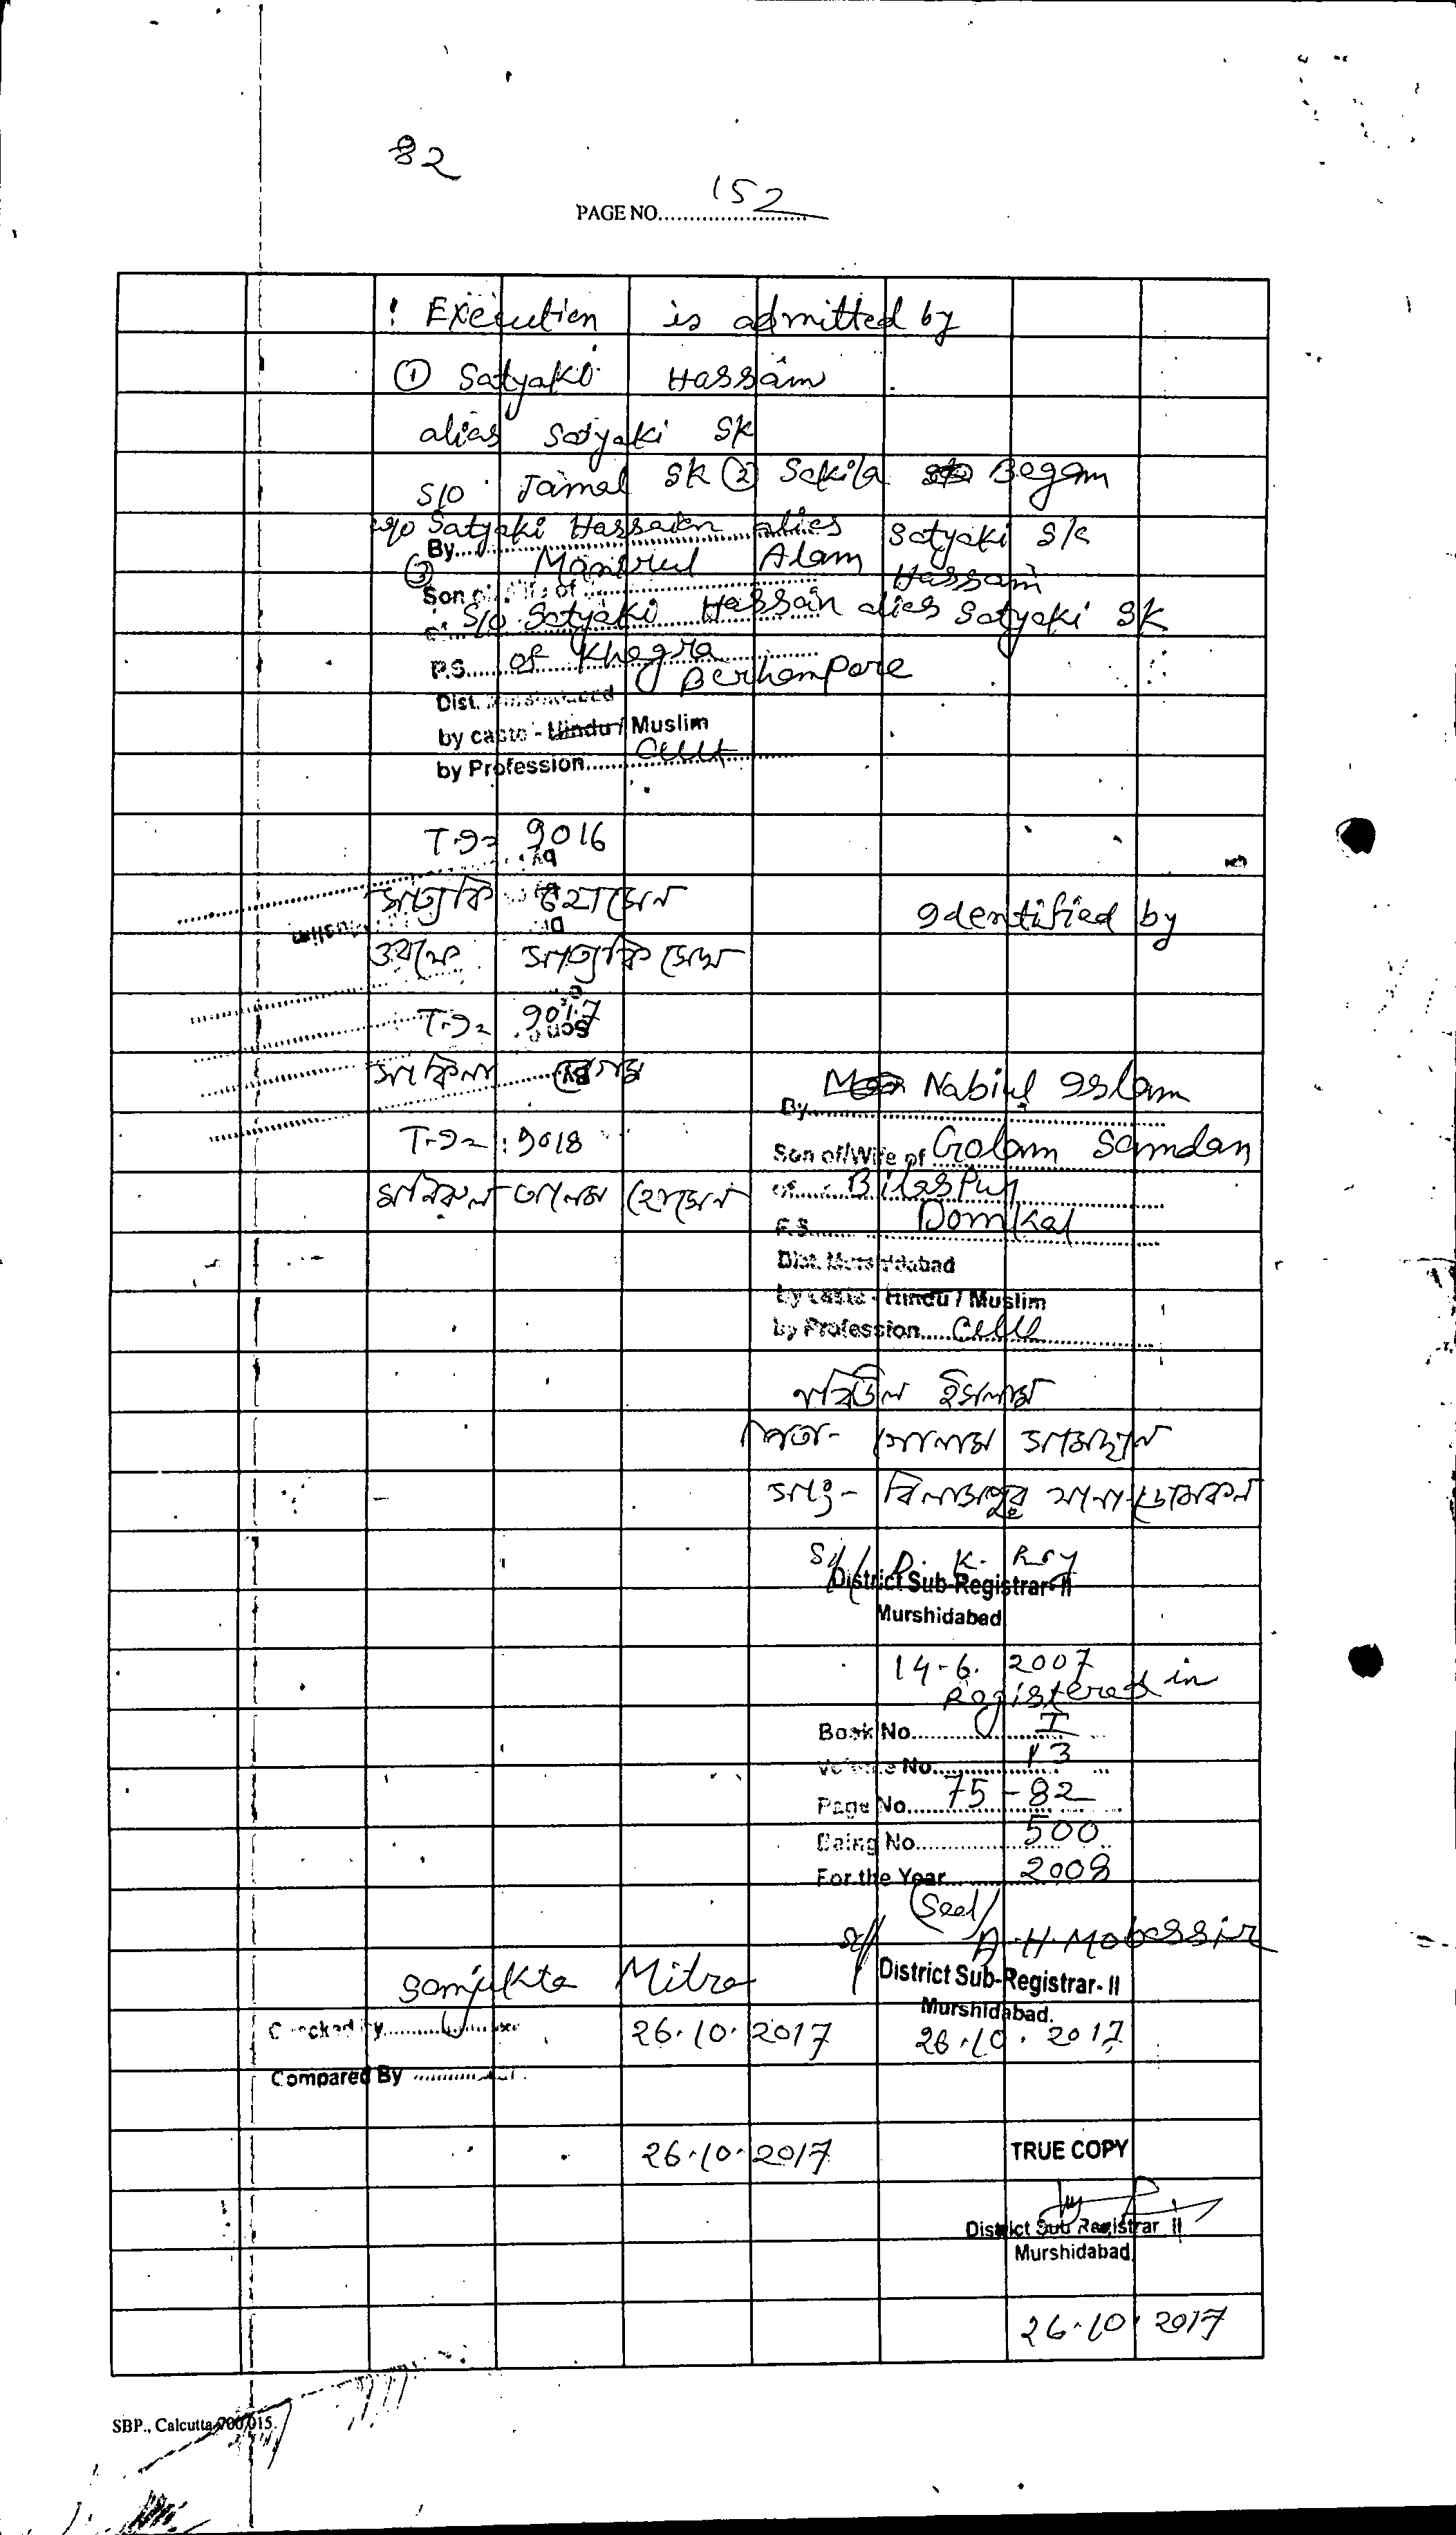 82
PAGE NO. 152
Execution is admitted by
① Satyaki Hassain
alias Satyaki SK
S/O Jamal SK ② Sakila Begam
w/o Satyaki Hassain alies Satyaki SK
By
③ Manirul Alam Hassain
Son of/Wife of
of S/O Satyaki Hassain alies Satyaki SK
P.S. of Khagra Berhampore
Dist. Murshidabad
by caste - Hindu / Muslim
by Profession Cult
T.I= 9016
সাত্যকি হোসেন
ওরফে সাত্যকি সেখ
T.I= 9017
সাকিলা বেগম
T.I= 9018
মনিরুল আলম হোসেন
Identified by
By Nabiul Islam
Son of/Wife of Golam Samdan
of Bilaspur
P.S. Domkal
Dist. Murshidabad
by caste - Hindu / Muslim
by Profession Cult
নবিউল ইসলাম
পিতা- গোলাম সামদান
সাং- বিলাসপুর থানা- ডোমকল
Sd/ D. K. Roy
District Sub-Registrar-II
Murshidabad
14-6. 2007
Registered in
Book No. I
Volume No. 13
Page No. 75-82
Being No. 500
For the Year 2008
(Seal)
Sd/ A.H. Mobassir
District Sub-Registrar-II
Murshidabad.
26.10.2017
Sanjukta Mitra
Checked By 26.10.2017
Compared By
26.10.2017
TRUE COPY
District Sub Registrar II
Murshidabad
26.10.2017
SBP., Calcutta-700 015.